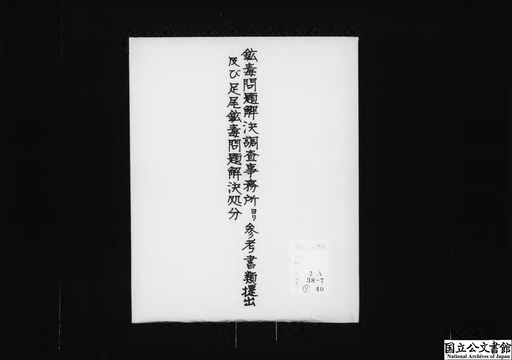 鉱毒問題解決調査事務所ヨリ参考書類提出
及び足尾鉱毒問題解決処分
2A
38-7
40
国立公文書館
National Archives of Japan